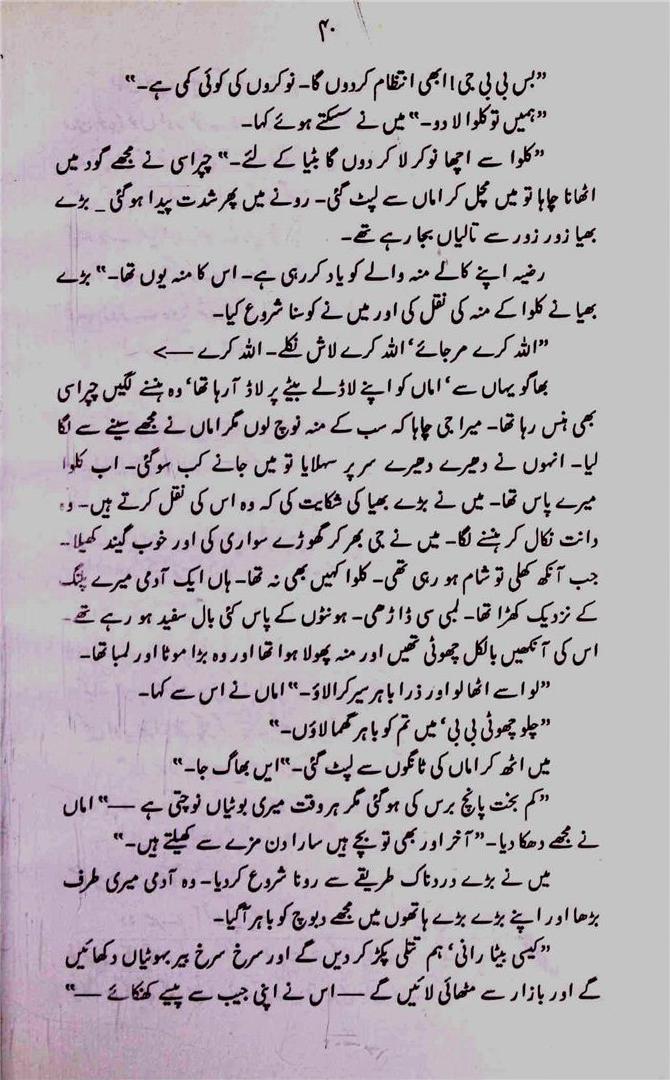 ۴۰
"بس بی بی جی! ابھی انتظام کردوں گا۔ نوکروں کی کوئی کمی ہے۔"
"ہمیں تو کلوا لا دو۔" میں نے سسکتے ہوئے کہا۔
"کلوا سے اچھا نوکر لا کر دوں گا بٹیا کے لئے۔" چپراسی نے مجھے گود میں
اٹھانا چاہا تو میں مچل کر اماں سے لپٹ گئی۔ رونے میں پھر شدت پیدا ہوگئی ۔ بڑے
بھیا زور زور سے تالیاں بجا رہے تھے۔
رضیہ اپنے کالے منہ والے کو یاد کررہی ہے۔ اس کا منہ یوں تھا۔" بڑے
بھیا نے کلوا کے منہ کی نقل کی اور میں نے کوسنا شروع کیا۔
"اللہ کرے مرجائے، اللہ کرے لاش نکلے۔ اللہ کرے —>
بھاگو یہاں سے، اماں کو اپنے لاڈلے بیٹے پر لاڈ آرہا تھا، وہ ہنسنے لگیں چپراسی
بھی ہنس رہا تھا۔ میرا جی چاہا کہ سب کے منہ نوچ لوں مگر اماں نے مجھے سینے سے لگا
لیا۔ انہوں نے دھیرے دھیرے سر پر سہلایا تو میں جانے کب سوگئی۔ اب کلوا
میرے پاس تھا۔ میں نے بڑے بھیا کی شکایت کی کہ وہ اس کی نقل کرتے ہیں۔ وہ
دانت نکال کر ہنسنے لگا۔ میں نے جی بھر کر گھوڑے سواری کی اور خوب گیند کھیلا۔
جب آنکھ کھلی تو شام ہو رہی تھی۔ کلوا کہیں بھی نہ تھا۔ ہاں ایک آدمی میرے پلنگ
کے نزدیک کھڑا تھا۔ لمبی سی ڈاڑھی۔ ہونٹوں کے پاس کئی بال سفید ہو رہے تھے۔
اس کی آنکھیں بالکل چھوٹی تھیں اور منہ پھولا ہوا تھا اور وہ بڑا موٹا اور لمبا تھا۔
"لو اسے اٹھا لو اور ذرا باہر سیر کرالاؤ۔" اماں نے اس سے کہا۔
"چلو چھوٹی بی بی، میں تم کو باہر گھما لاؤں۔"
میں اٹھ کر اماں کی ٹانگوں سے لپٹ گئی۔ "ایں بھاگ جا۔"
"کم بخت پانچ برس کی ہوگئی مگر ہر وقت میری بوٹیاں نوچتی ہے —" اماں
نے مجھے دھکا دیا۔ "آخر اور بھی تو بچے ہیں سارا دن مزے سے کھیلتے ہیں۔"
میں نے بڑے دردناک طریقے سے رونا شروع کردیا۔ وہ آدمی میری طرف
بڑھا اور اپنے بڑے بڑے ہاتھوں میں مجھے دبوچ کو باہر آگیا۔
"کیسی بیٹا رانی، ہم تتلی پکڑ کر دیں گے اور سرخ سرخ بیر بہوٹیاں دکھائیں
گے اور بازار سے مٹھائی لائیں گے — اس نے اپنی جیب سے پیسے کھنکائے —"